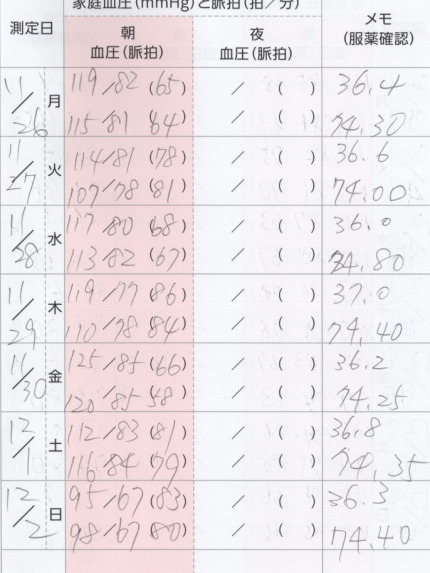 家庭血圧(mmHg)と脈拍(拍/分)
測定日 朝 血圧(脈拍) 夜 血圧(脈拍) メモ (服薬確認)
11/26 月 119/82 (65) / ( ) 36.4
115/81 64) / ( ) 74.30
11/27 火 114/81 (78) / ( ) 36.6
107/78 (81) / ( ) 74.00
11/28 水 117/80 (68) / ( ) 36.0
113/82 (67) / ( ) 74.80
11/29 木 119/77 (86) / ( ) 37.0
110/78 84) / ( ) 74.40
11/30 金 125/85 (66) / ( ) 36.2
120/85 58) / ( ) 74.25
12/1 土 112/83 (81) / ( ) 36.8
116/84 (79) / ( ) 74.35
12/2 日 95/67 (83) / ( ) 36.3
98/67 (80) / ( ) 74.40